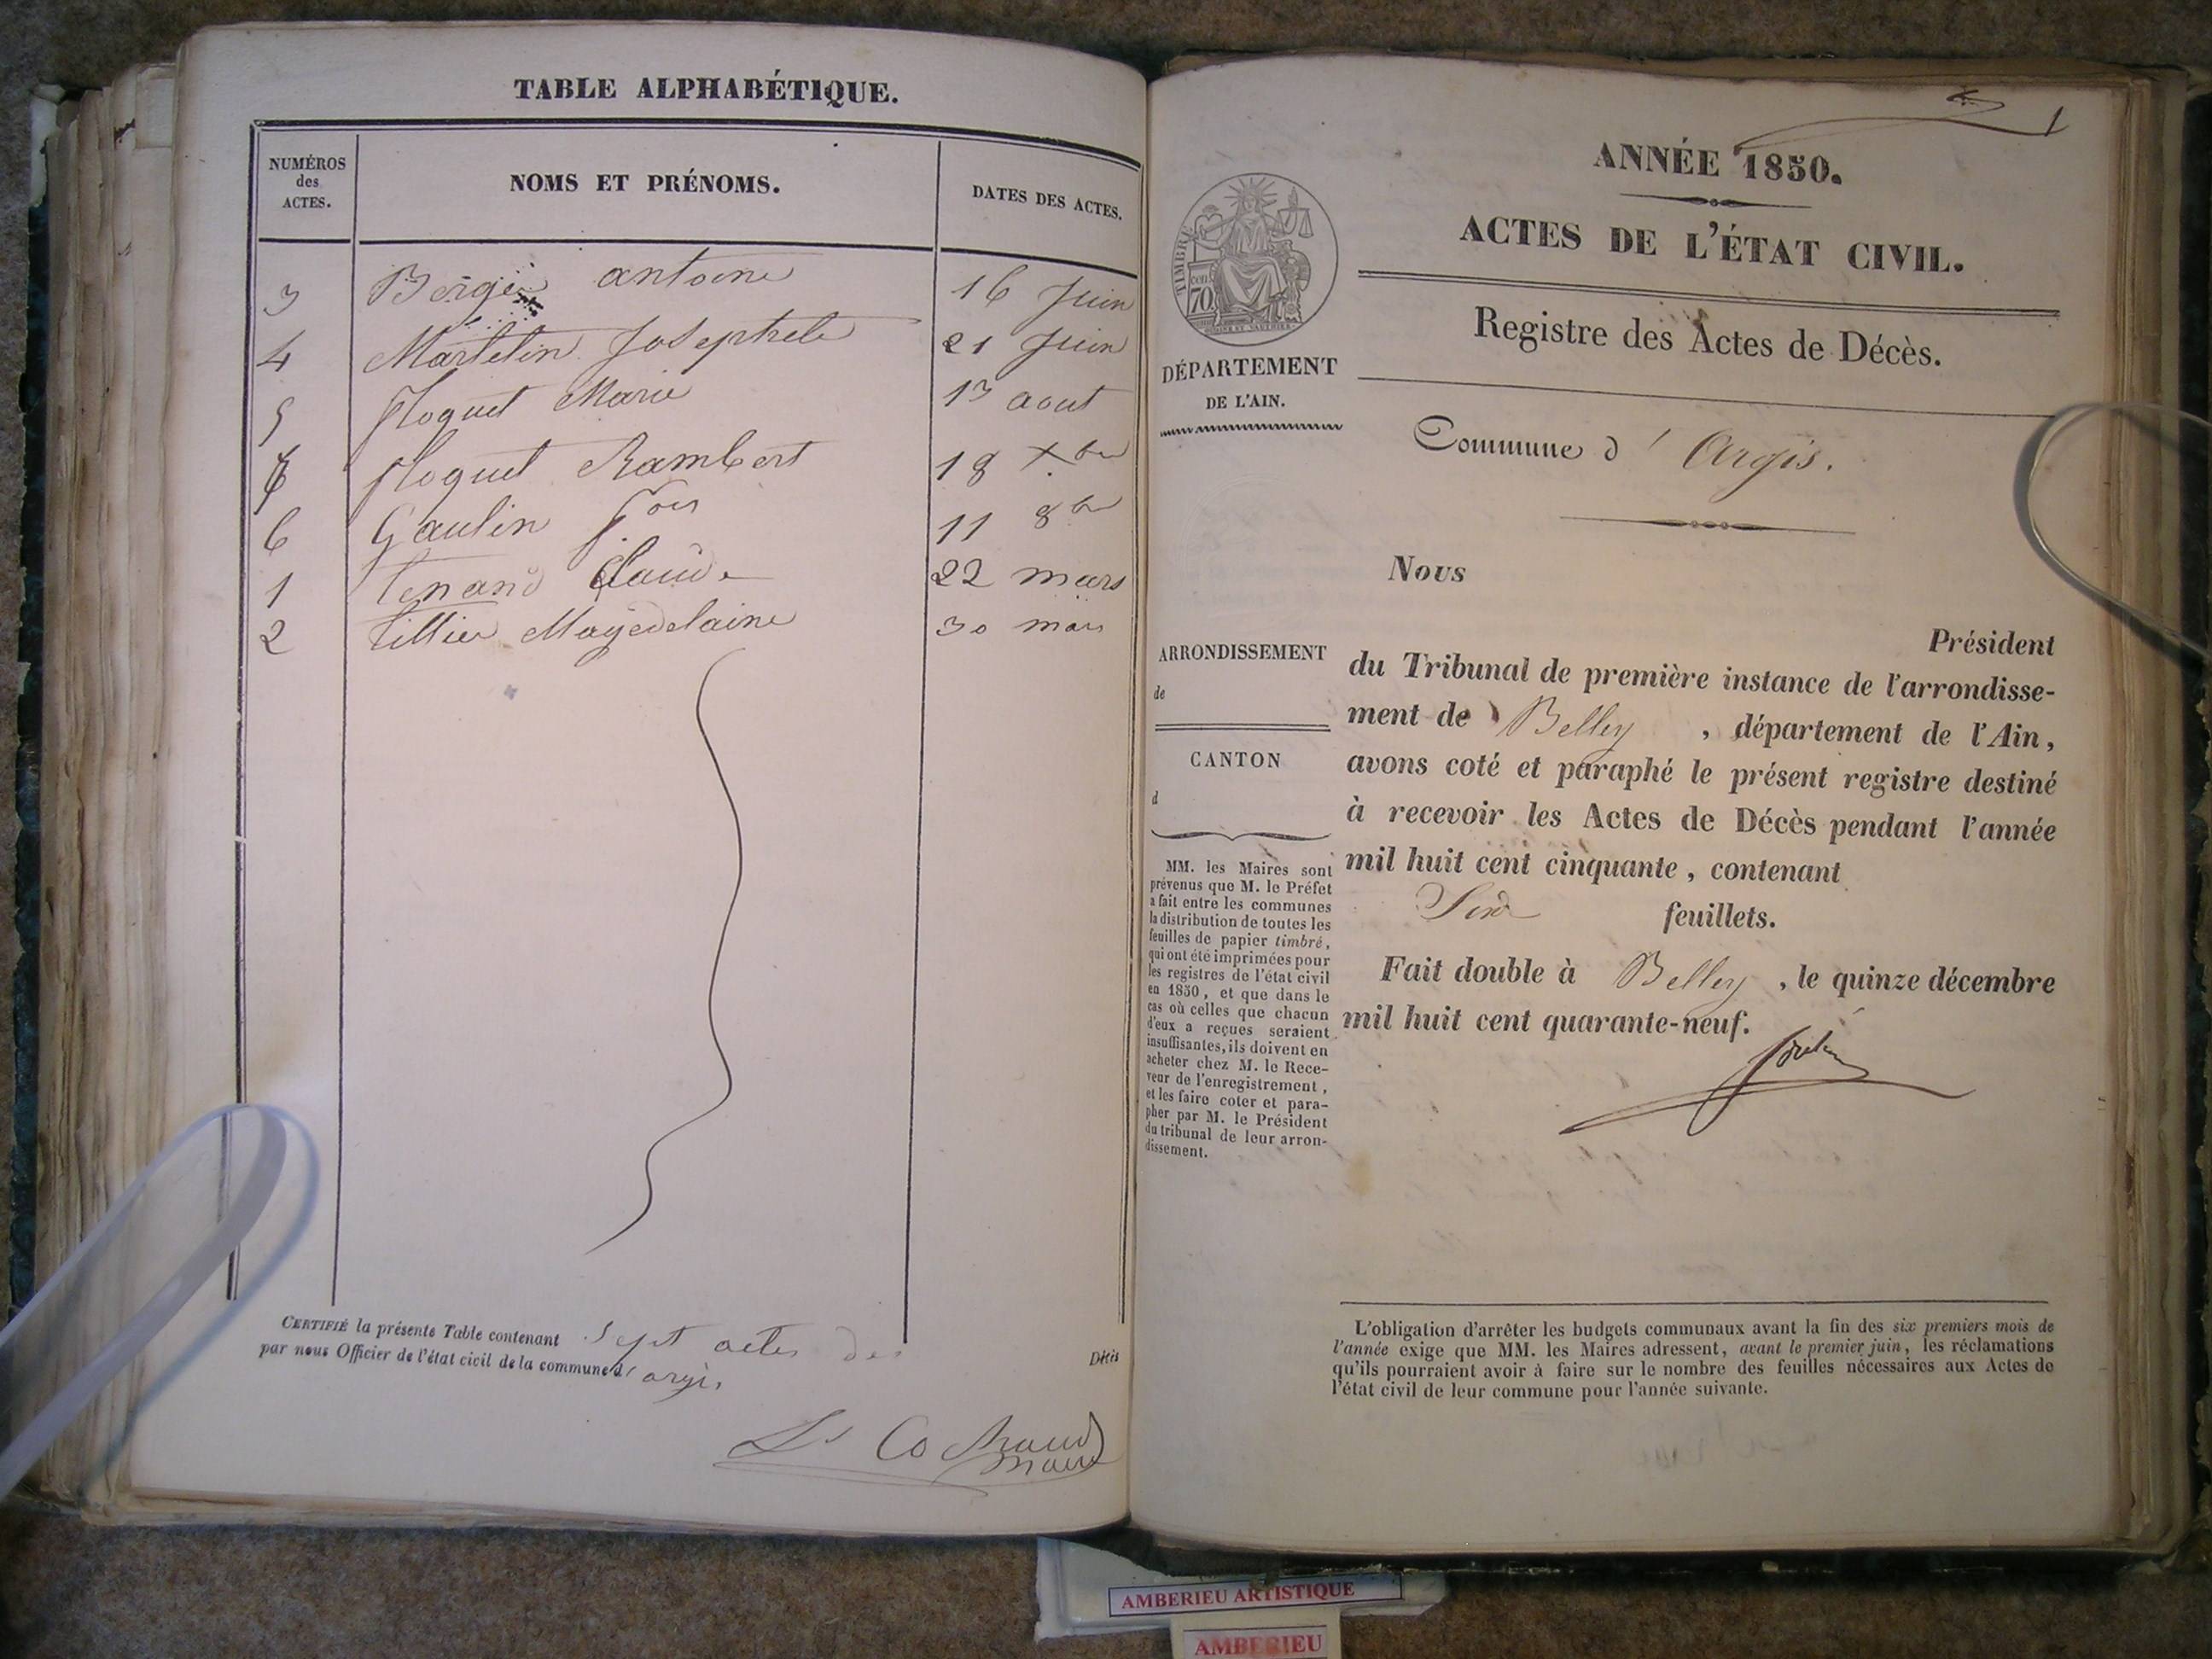 TABLE ALPHABÉTIQUE.
NUMÉROS
des
ACTES.
NOMS ET PRÉNOMS.
DATES DES ACTES.
3 antoine 16 Juin
4 Martelin 21 Juin
5 floquet Marie 13 aout
7 floquet Rambert 18 Xbre
6 Gaulin fois 11 8bre
1 tenand Claude 22 mars
2 tillier Magedelaine 30 mars
CERTIFIÉ la présente Table contenant Sept actes de Décès
par nous Officier de l'état civil de la commune d' argis
Ls Cochaud
maire
1
ANNÉE 1850.
ACTES DE L'ÉTAT CIVIL.
TIMBRE
cen
70
DÉPARTEMENT
DE L'AIN.
Registre des Actes de Décès.
Commune d' Argis.
Nous
Président
ARRONDISSEMENT
de
CANTON
d
du Tribunal de première instance de l'arrondisse-
ment de Belley , département de l'Ain,
avons coté et paraphé le présent registre destiné
à recevoir les Actes de Décès pendant l'année
mil huit cent cinquante, contenant
feuillets.
Fait double à Belley , le quinze décembre
mil huit cent quarante-neuf.
MM. les Maires sont
prévenus que M. le Préfet
a fait entre les communes
la distribution de toutes les
feuilles de papier timbré,
qui ont été imprimées pour
les registres de l'état civil
en 1850, et que dans le
cas où celles que chacun
d'eux a reçues seraient
insuffisantes, ils doivent en
acheter chez M. le Rece-
veur de l'enregistrement,
et les faire coter et para-
pher par M. le Président
du tribunal de leur arron-
dissement.
L'obligation d'arrêter les budgets communaux avant la fin des six premiers mois de
l'année exige que MM. les Maires adressent, avant le premier juin, les réclamations
qu'ils pourraient avoir à faire sur le nombre des feuilles nécessaires aux Actes de
l'état civil de leur commune pour l'année suivante.
AMBERIEU ARTISTIQUE
AMBERIEU